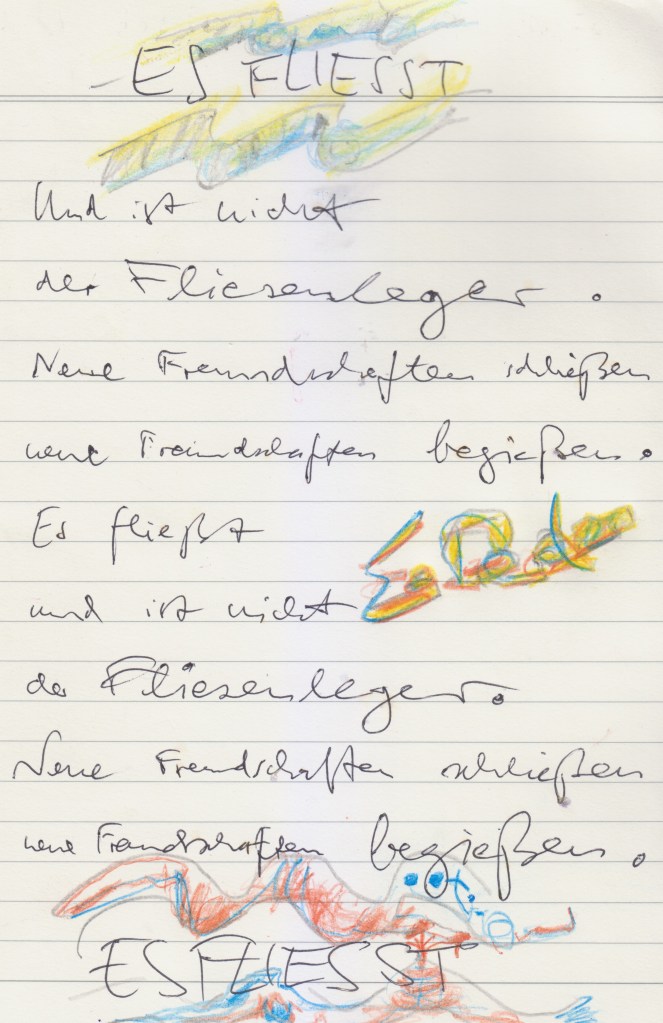 ES FLIESST
Und ist nicht
der Fliesenleger.
Neue Freundschaften schließen
neue Freundschaften begießen.
Es fließt
und ist nicht
der Fliesenleger.
Neue Freundschaften schließen
neue Freundschaften begießen.
ES FLIESST